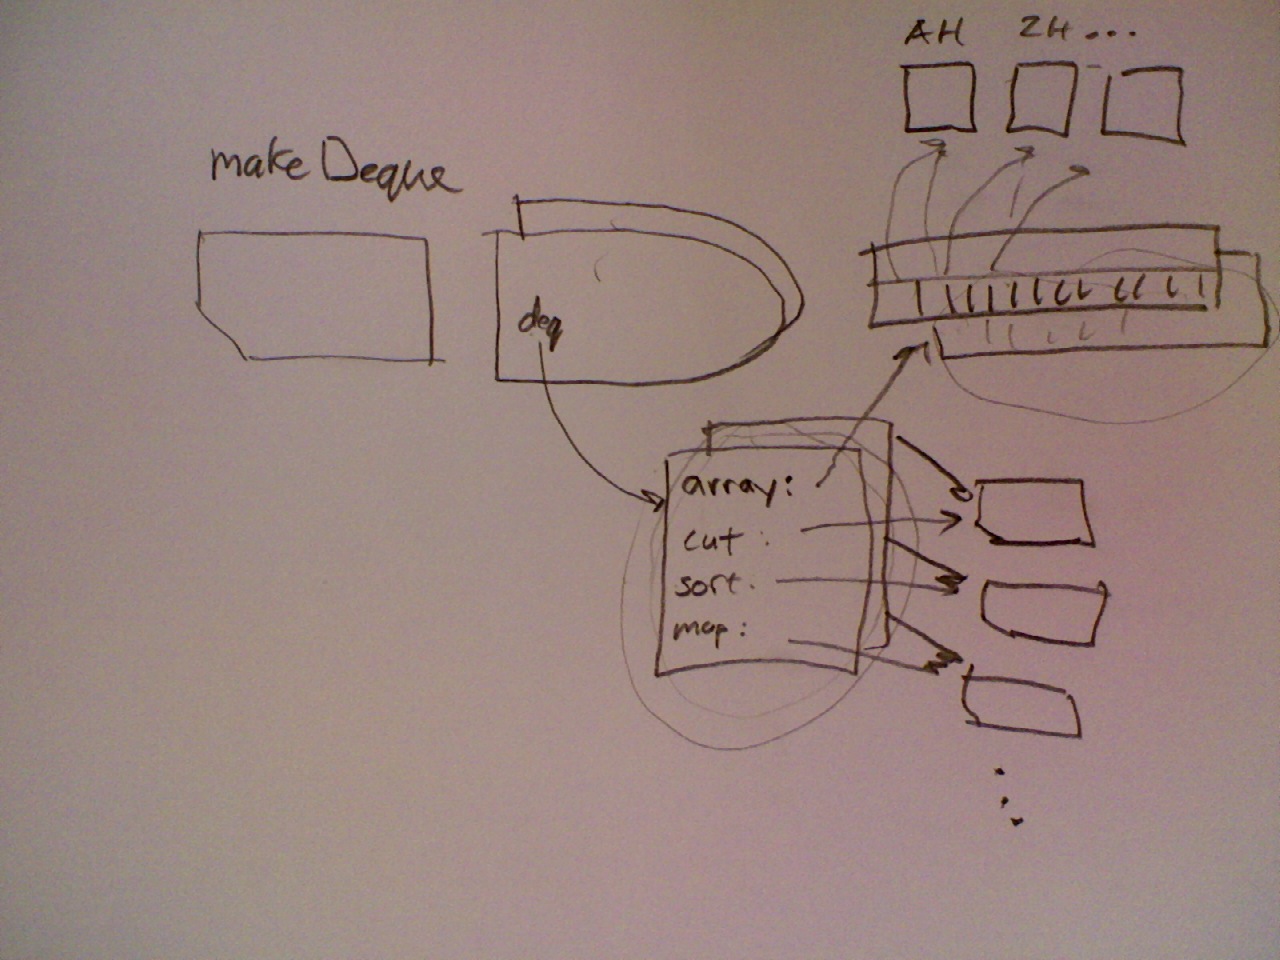 AH 2H...
make Deque
deq
array:
cut:
sort:
map: